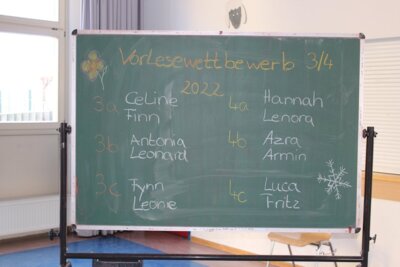 Vorlesewettbewerb 3/4
2022
3a Celine
Finn
3b Antonia
Leonard
3c Fynn
Leonie
4a Hannah
Lenora
4b Azra
Armin
4c Luca
Fritz